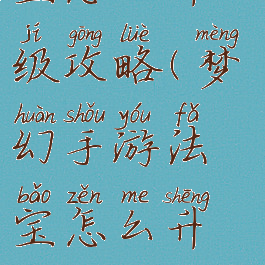 jí gōng lüè mèng
级攻略(梦
huàn shǒu yóu fǎ
幻手游法
bǎo zěn me shēng
宝怎么升